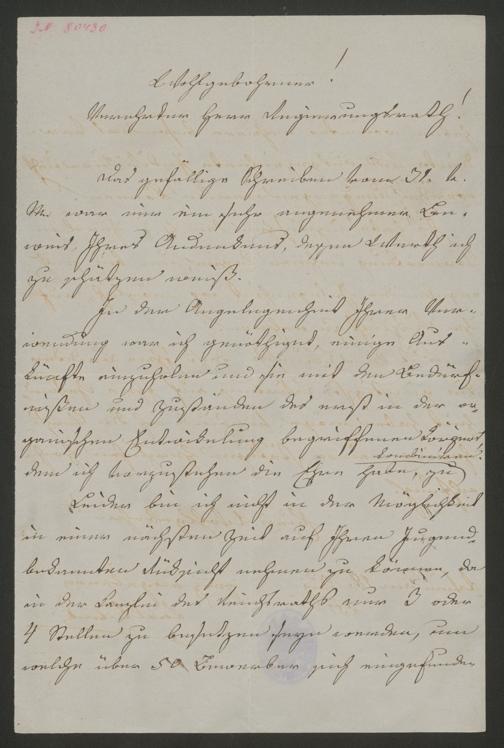 I.N. 80430
Wohlgebohrner!
Verehrter Herr Regierungsrath!
Das gefällige Schreiben vom 31. v.
M. war mir ein sehr angenehmer Be-
weis Ihres Andenkens, deßen Werth ich
zu schätzen weiß.
In der Angelegenheit Ihrer Ver-
wendung war ich genöthiget, einige Aus-
künfte einzuholen und sie mit den Bedürf-
nißen und Zuständen des erst in der or-
ganischen Entwickelung begriffenen Körpers,
dem ich vorzustehen die Ehre habe, zu
combiniren.
Leider bin ich nicht in der Möglichkeit
in einer nächsten Zeit auf Ihren Jugend-
bekannten Rücksicht nehmen zu können, da
in der Kanzlei des Reichsraths nur 3 oder
4 Stellen zu besetzen seyn werden, um
welche über 50 Bewerber sich eingefunden